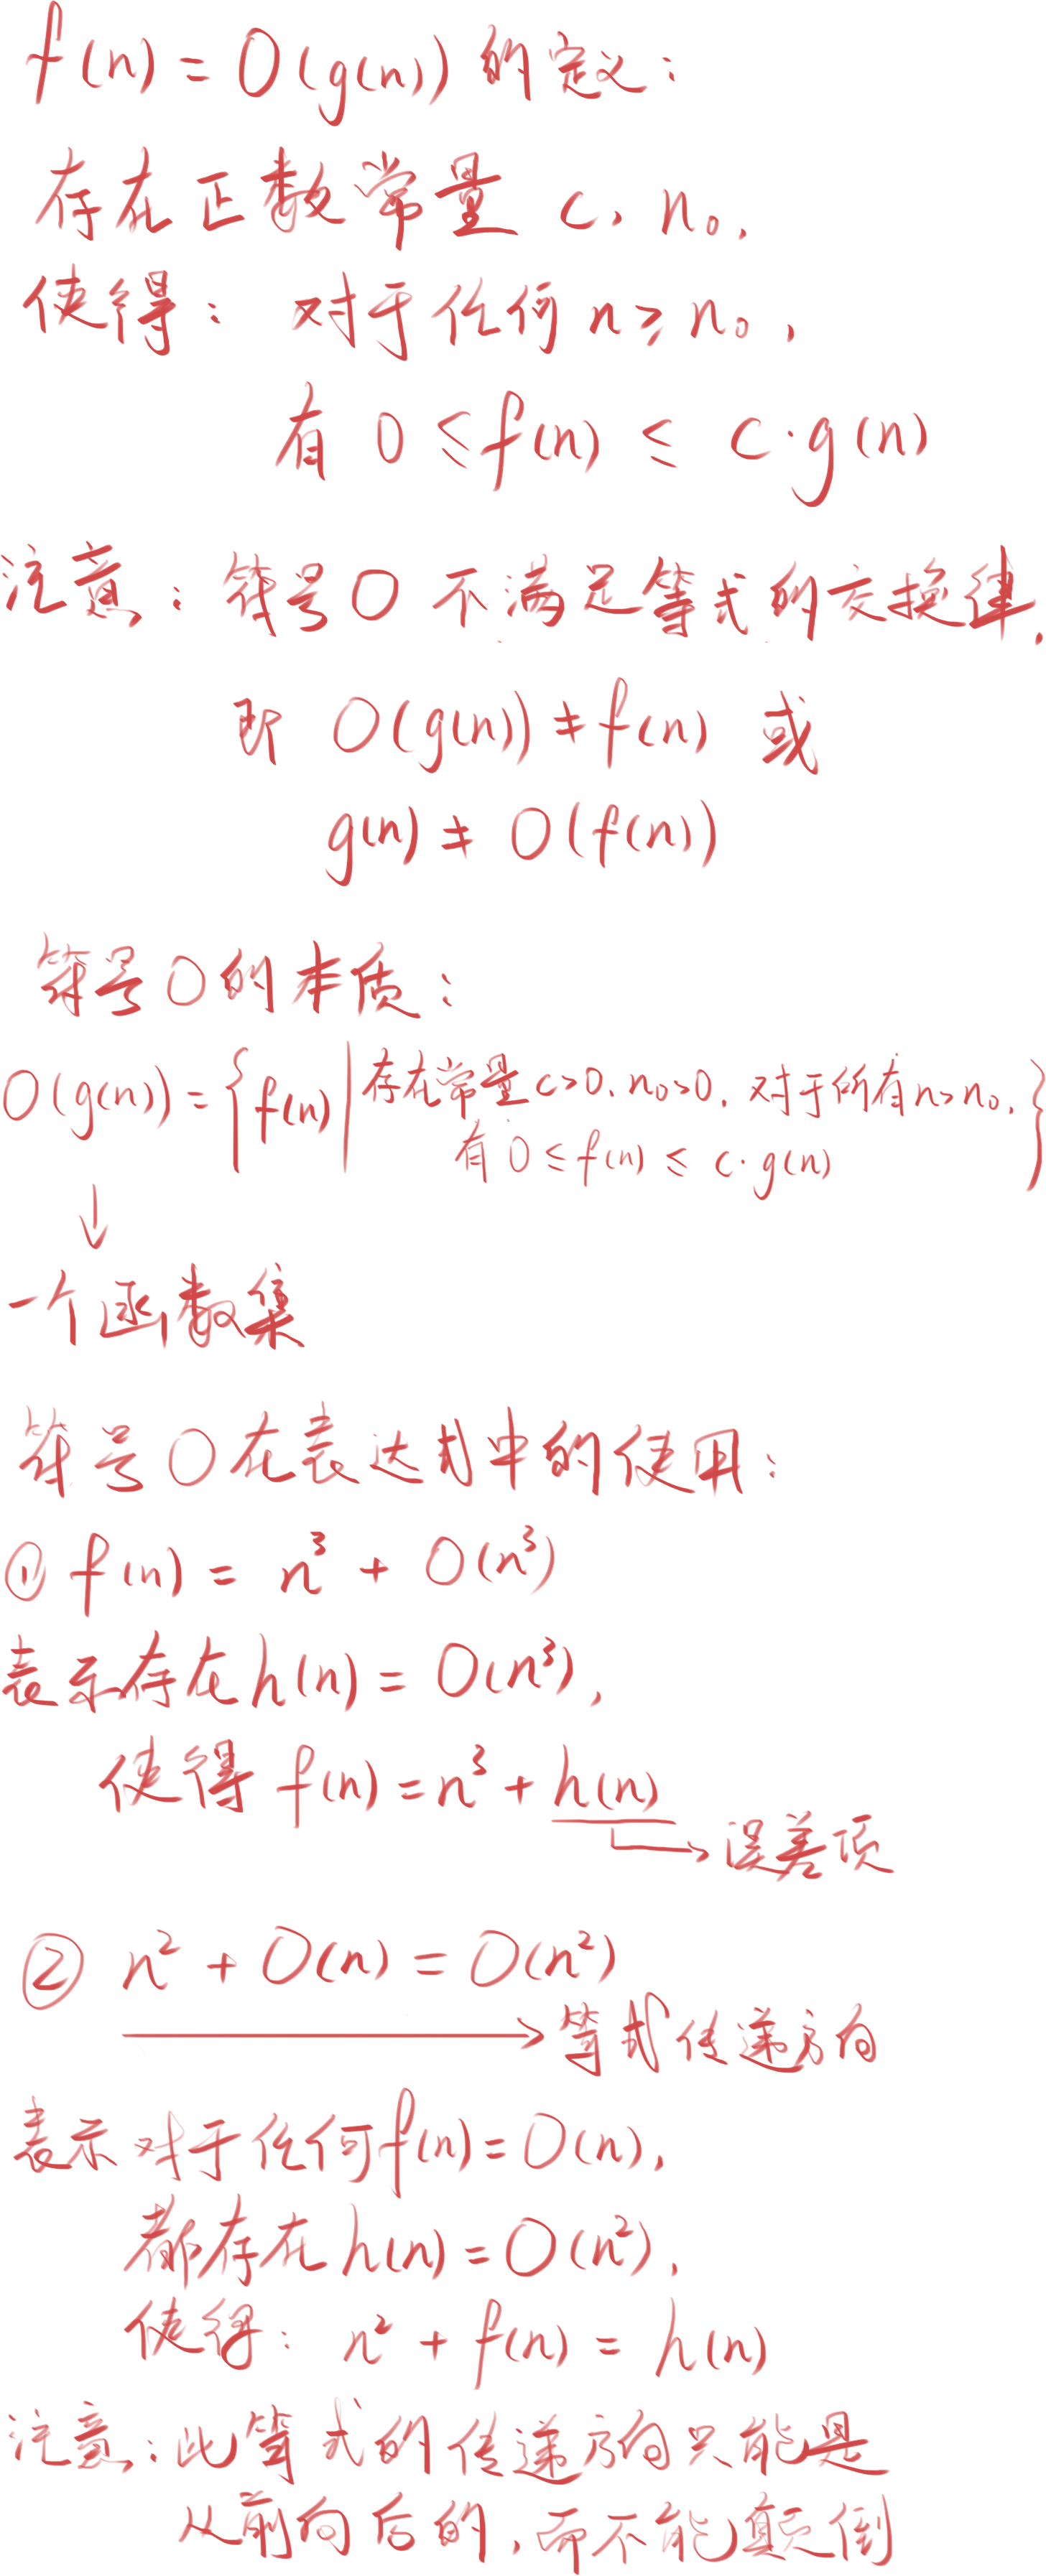 f(n) = O(g(n)) 的定义：
存在正数常量 c, n₀,
使得： 对于任何 n ≥ n₀,
有 0 ≤ f(n) ≤ c·g(n)
注意：符号O 不满足等式的交换律.
即 O(g(n)) ≠ f(n) 或
g(n) ≠ O(f(n))
符号O的本质：
O(g(n)) = { f(n) | 存在常量 c>0, n₀>0, 对于所有 n>n₀,
有 0 ≤ f(n) ≤ c·g(n) }
↓
一个函数集
符号O在表达式中的使用：
① f(n) = n³ + O(n³)
表示存在 h(n) = O(n³),
使得 f(n) = n³ + h(n)
→ 误差项
② n² + O(n) = O(n²)
→ 等式传递方向
表示对于任何 f(n) = O(n),
都存在 h(n) = O(n²),
使得： n² + f(n) = h(n)
注意：此等式的传递方向只能是
从前向后的, 而不能颠倒